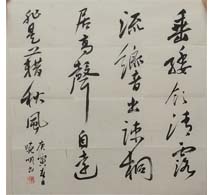 垂緌飲清露
流響出疎桐
居高聲自遠
非是藉秋風
庚寅